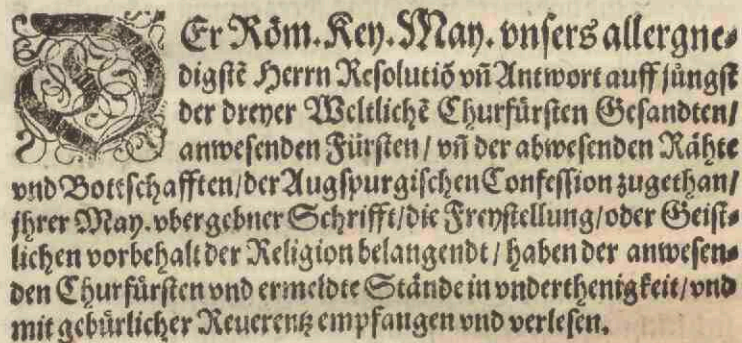 DEr Röm. Key. May. vnsers allergne⸗
digstē Herrn Resolutiō vn̄ Antwort auff jüngst
der dreyer Weltlichē Churfürsten Gesandten/
anwesenden Fürsten / vn̄ der abwesenden Rähte
vnd Bottschafften/der Augspurgischen Confession zugethan/
jhrer May. vbergebner Schrifft/die Freystellung/oder Geist⸗
lichen vorbehalt der Religion belangendt / haben der anwesen⸗
den Churfürsten vnd ermeldte Stände in vnderthenigkeit/vnd
mit gebürlicher Reuerentz empfangen vnd verlesen.